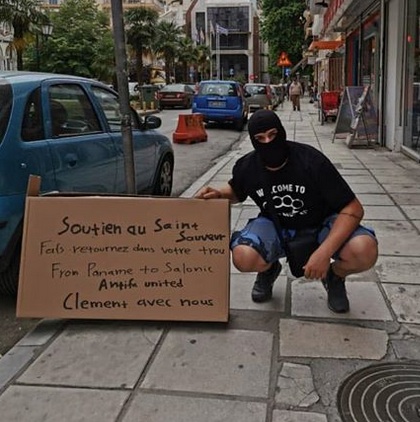 Soutien au Saint
Sauveur
Fafs retournez dans votre trou
From Paname to Salonic
Antifa united
Clement avec nous
WELCOME TO